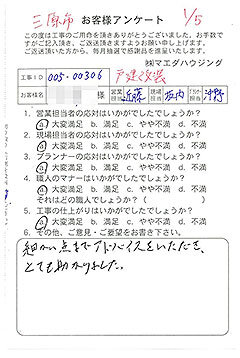 三原市 お客様アンケート 1/5
この度は工事のご用命を頂きありがとうございました。お手数で
すがご記入頂き、ご返送頂きますようお願い申し上げます。
ご返送頂いた方から、毎月抽選で感謝品を進呈いたします。
㈱マエダハウジング
工事ID 005-00306 戸建改装
お客様名 様 営業担当 近藤 現場担当 垣内
1. 営業担当者の応対はいかがでしたでしょうか?
a 大変満足 b. 満足 c. やや不満 d. 不満
2. 現場担当者の応対はいかがでしたでしょうか?
a 大変満足 b. 満足 c. やや不満 d. 不満
3. プランナーの応対はいかがでしたでしょうか?
a 大変満足 b. 満足 c. やや不満 d. 不満
4. 職人のマナーはいかがでしたでしょうか?
a 大変満足 b. 満足 c. やや不満 d. 不満
それはどの職人でしょうか?( )
5. 工事の仕上がりはいかがでしたでしょうか?
a 大変満足 b. 満足 c. やや不満 d. 不満
6. その他、ご意見・ご要望をお書き下さい。
細かい点までアドバイスをいただき、
とても助かりました。